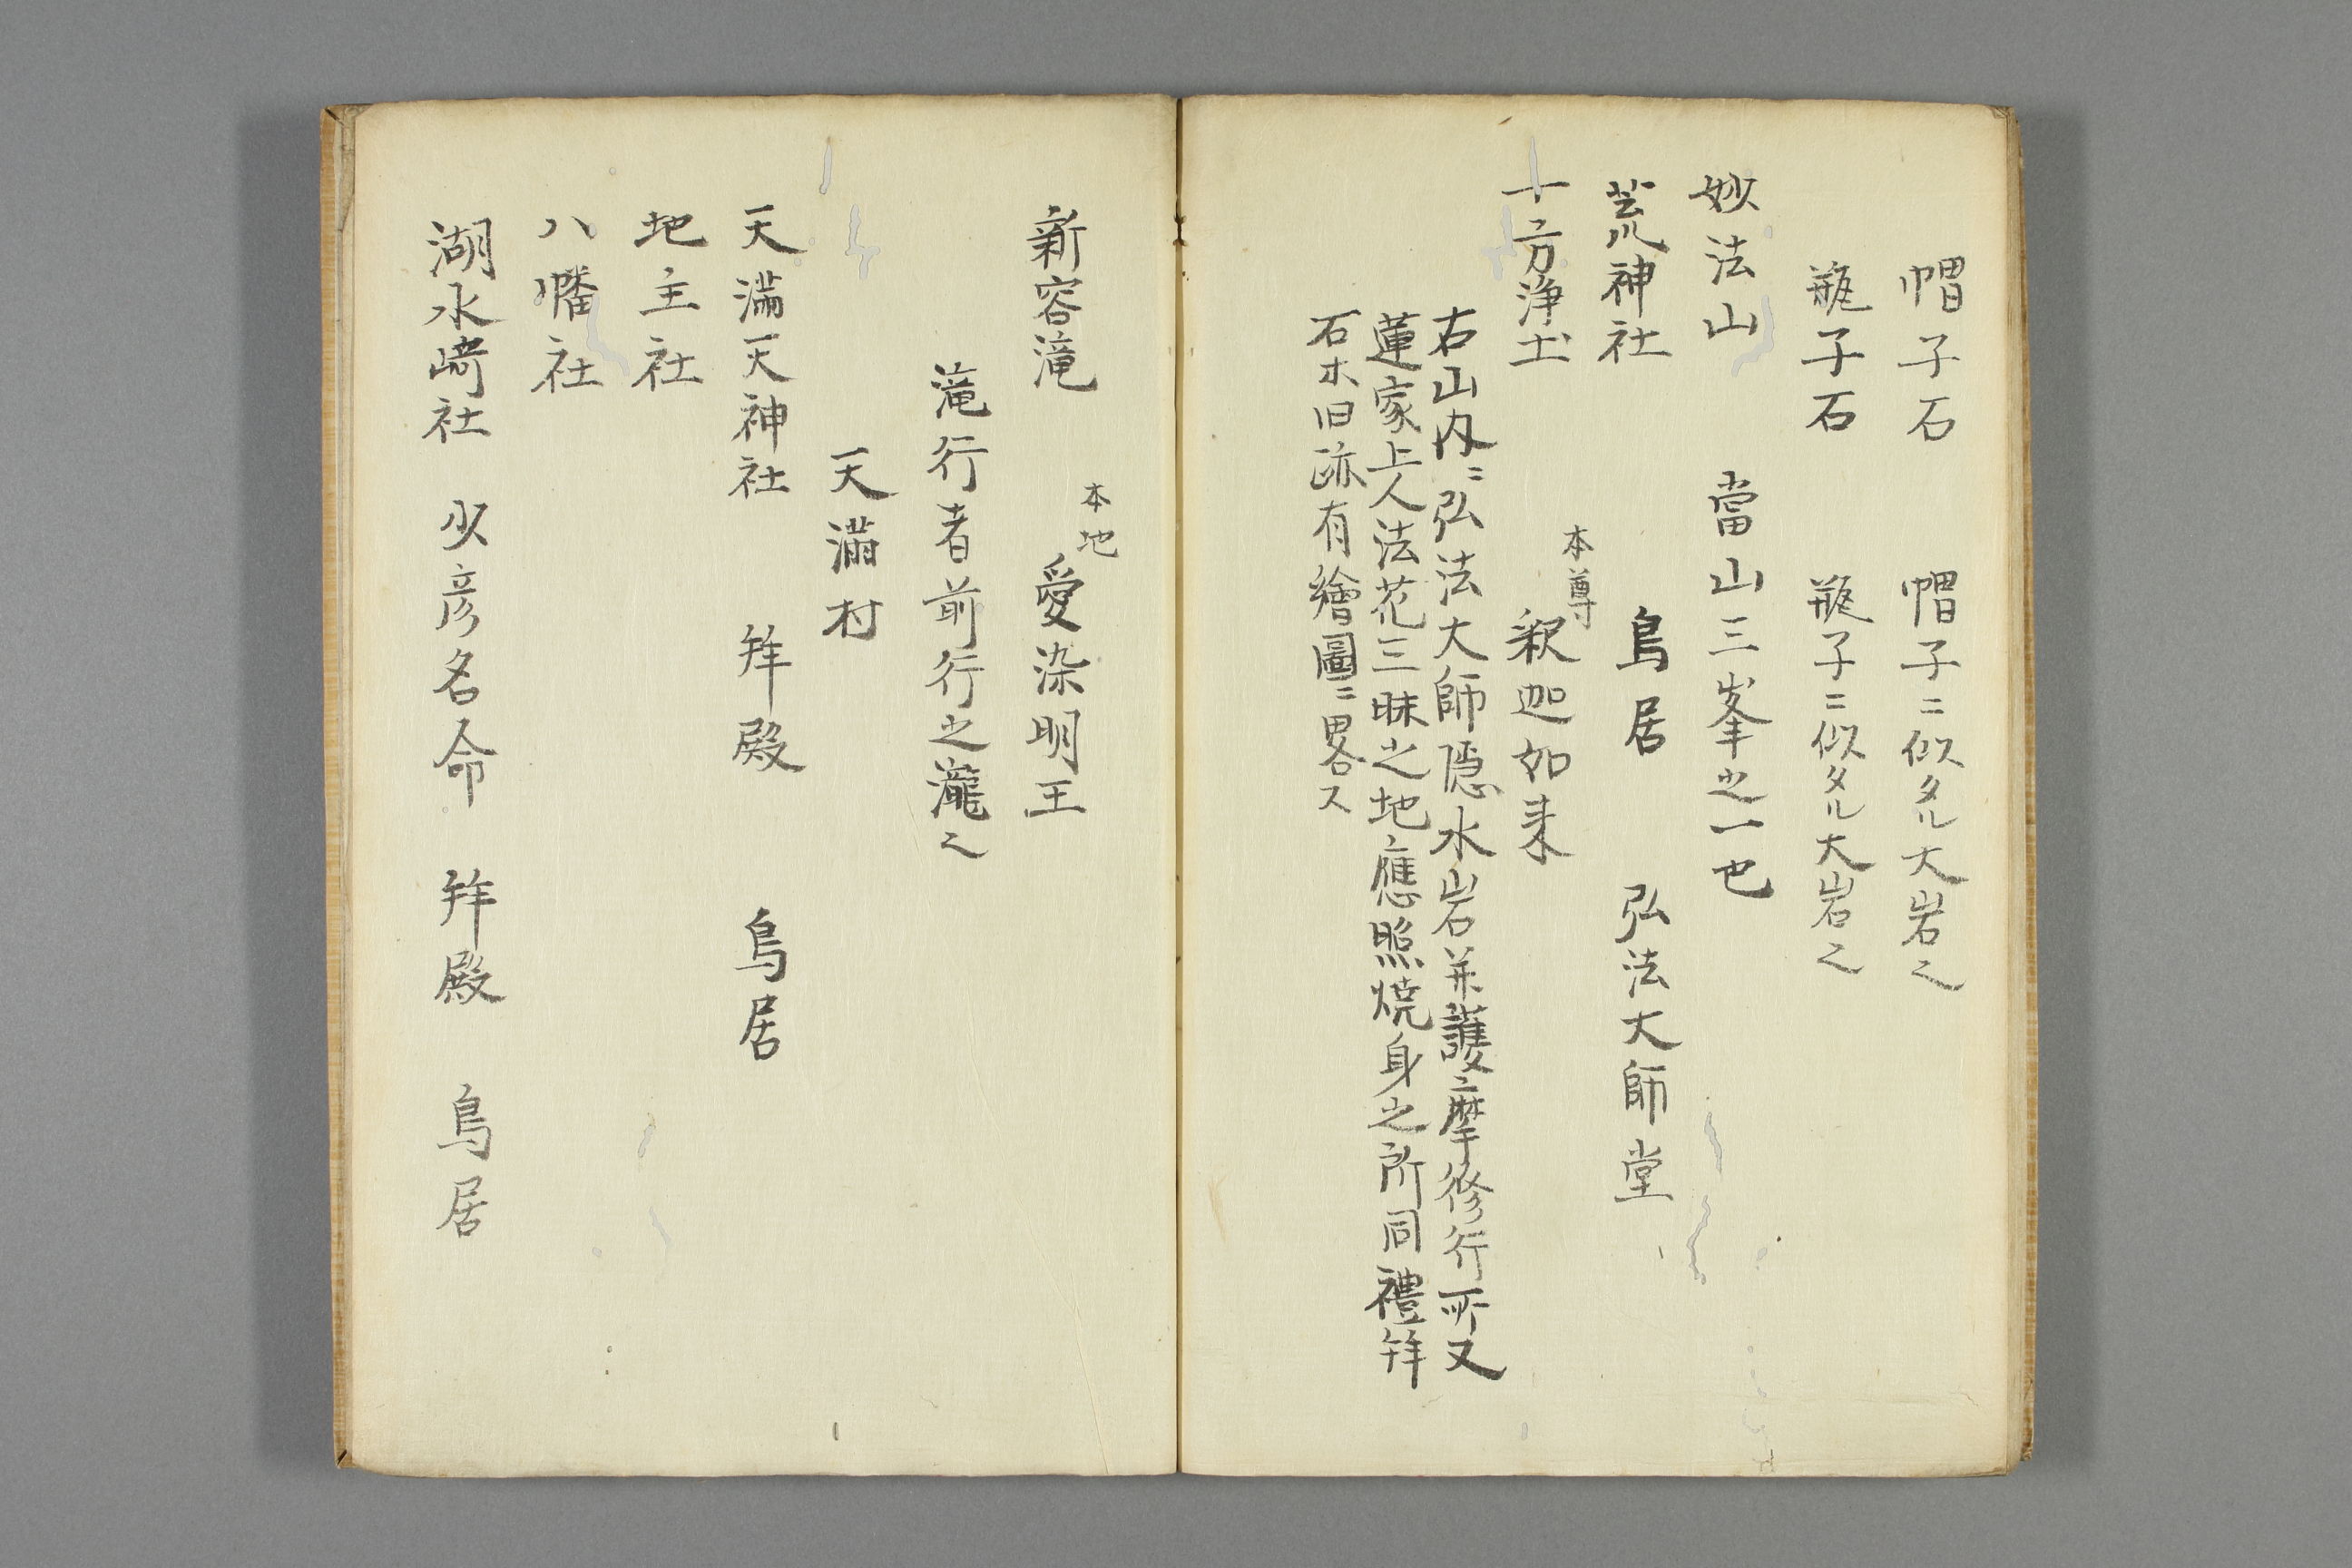 帽子石　帽子ニ似タル大岩之
瓶子石　瓶子ニ似タル大岩之
妙法山　當山三峯之一也
荒神社　鳥居　弘法大師堂
十方浄土　本尊　釈迦如来
右山内ニ弘法大師隠水岩并護摩修行所又
蓮家上人法花三昧之地應照焼身之所同禮拜
石木旧跡有繪圖ニ畧ス
新容滝　本地　愛染明王
滝行者前行之瀧之
天満村
天満天神社　拜殿　鳥居
地主社
八幡社
湖水﨑社　少彦名命　拜殿　鳥居